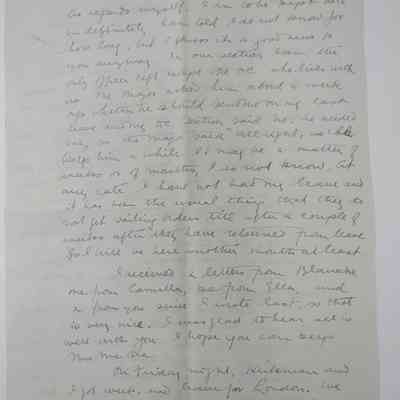 As regards myself I am to be kept here
indefinitely I am told I do not know for
how long, but I guess it is good news to
you anyway. In our section I am the
only officer left except the OC who lives with
us. The Major asked him about a week
ago whether he should send me on my
leave and the OC section said no, he needed
me, so the Major said "all right, we'll
keep him a while. It may be a matter of
weeks or of months, I do not know. At
any rate I have not had my leave and
it has been the usual thing that they do
not get sailing orders till after a couple of
weeks after they have returned from leave
so I will be here another month at least
I received 2 letters from Blanche
one from Camilla, one from Ella, and
2 from you since I wrote last, so that
is very nice. I was glad to hear all is
well with you. I hope you can keep
On Friday night, and
I got week-end leave for London. We